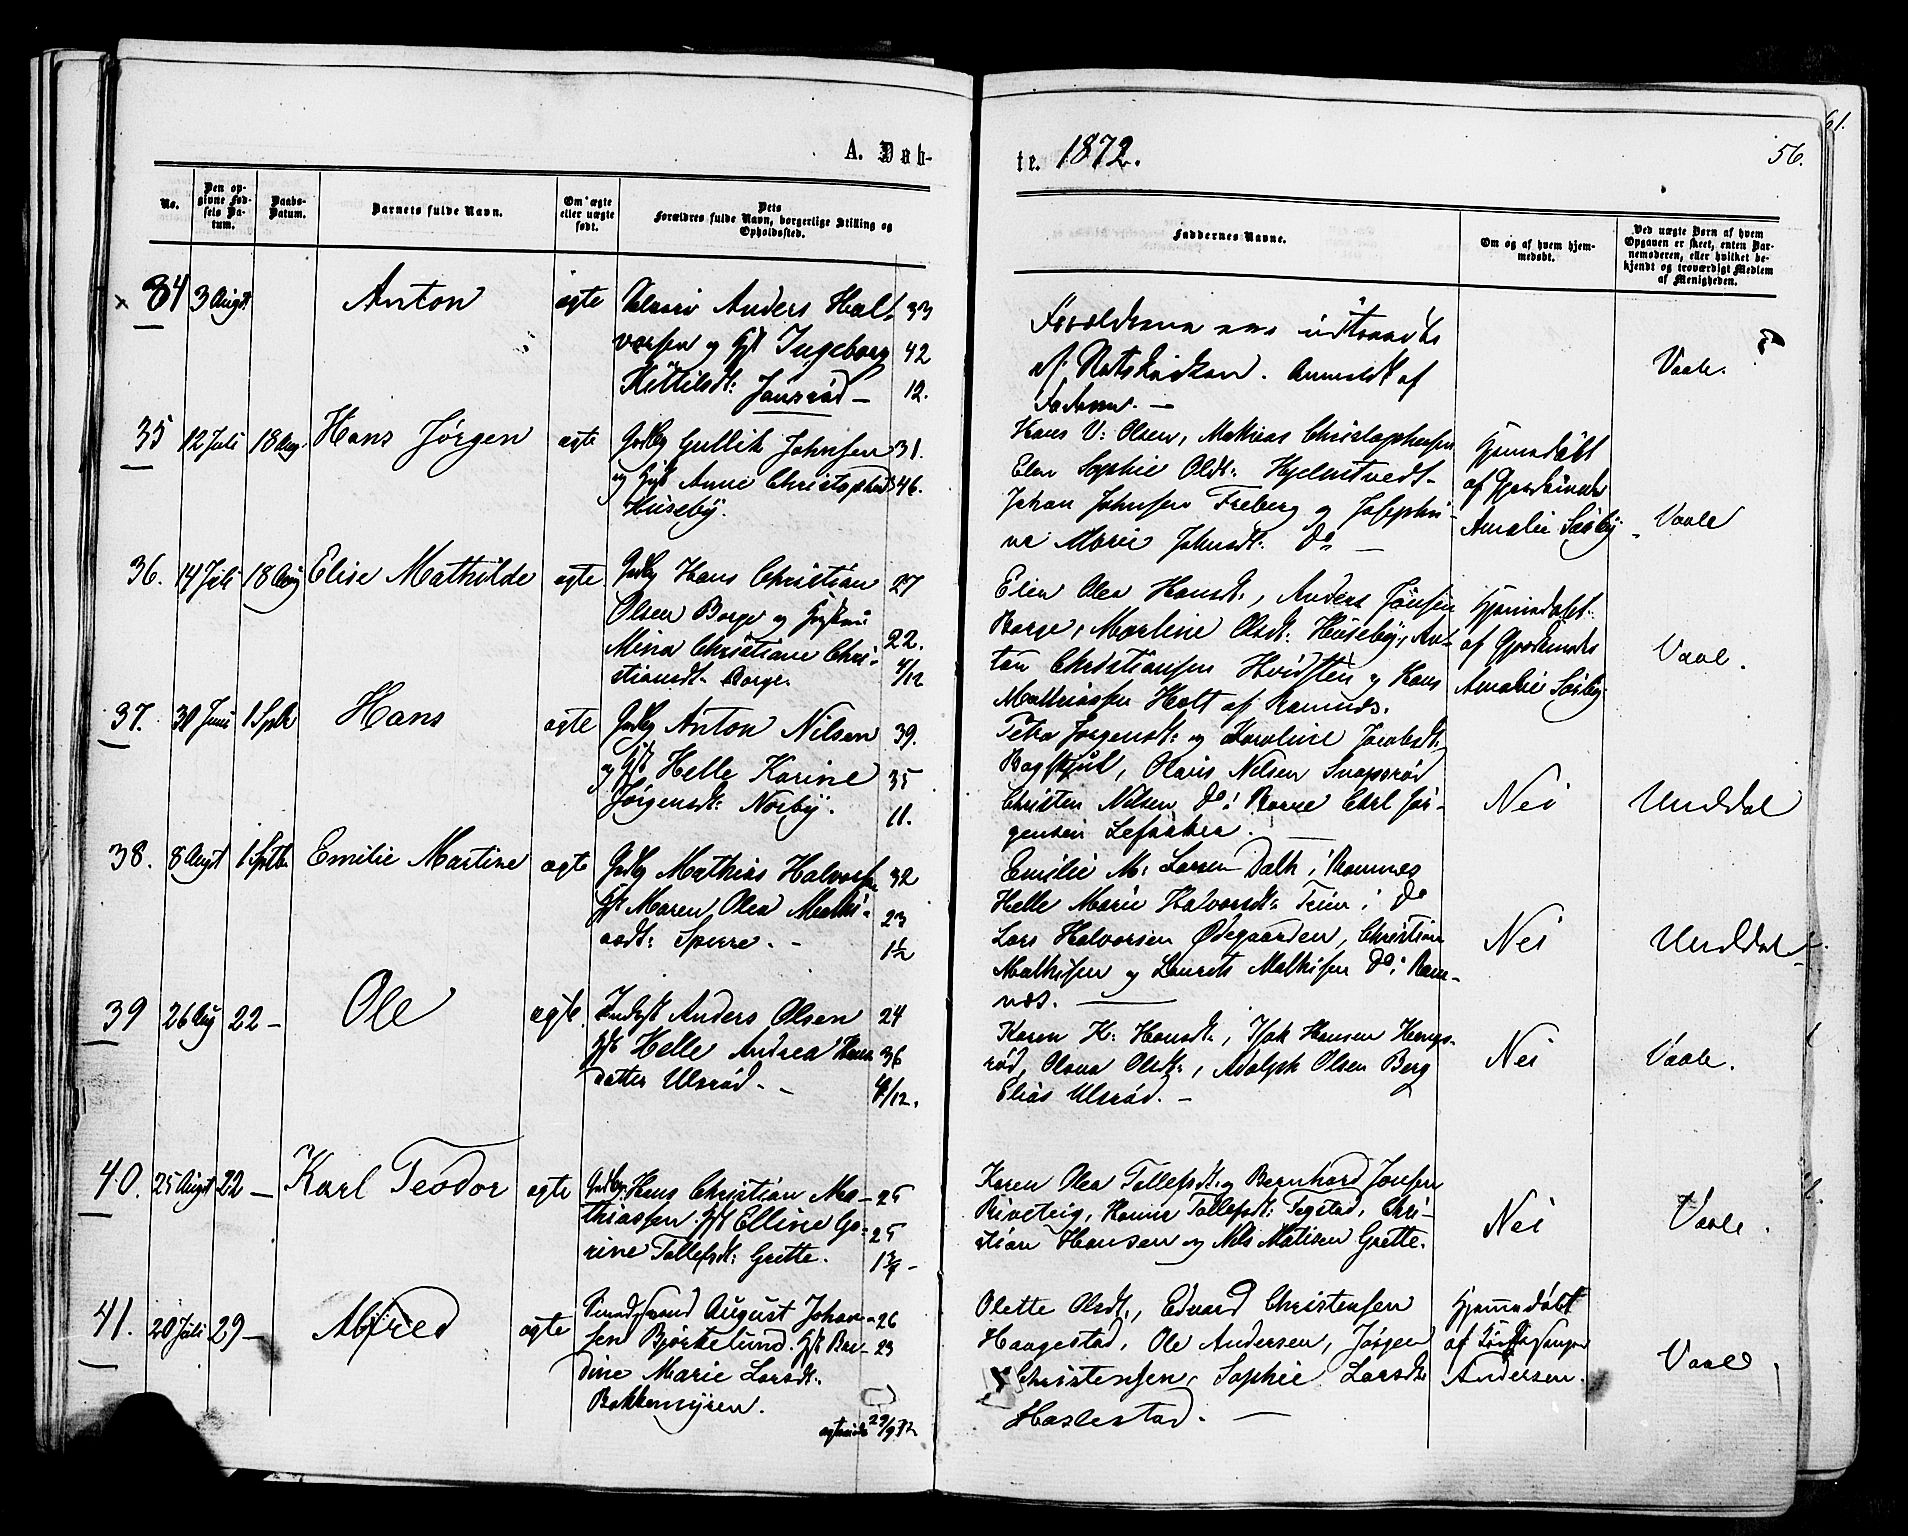 A. Døb-
te. 1872.
56.
61.
No.
Den op-
givne Fød-
sels Da-
tum.
Daabs-
Datum.
Barnets fulde Navn.
Om ægte
eller uægte
født.
Dets
Forældres fulde Navn, borgerlige Stilling og
Opholdssted.
Faddernes Navne.
Om og af hvem hjem-
medøbt.
Ved uægte Børn af hvem
Opgaven er skeet, enten Bar-
nemoderen, eller hvilket be-
kjendt og troværdigt Medlem
af Menigheden.
34 3 Augst Anton ægte Anders Hal- 33
vorsen og Hst Ingeborg 42
Kittilsdt: Jonsrød — 12.
Forældrene ere udtraadte
af Statskirken. Anmeldt af
Faderen. —
Vaale.
35 12 Juli 18 Aug. Hans Jørgen ægte Grdbr Gullik Johnsen 31.
og Hst Anne Christophsd 46.
Huseby.
Hans V: Olsen, Mathias Christophersen
Elen Sophie Olsdt: Hjelmtvedt-
Johan Johnsen Freberg og Josephi-
ne Marie Johnsdt: Do —
Hjemmedøbt
af Gjordemoder
Amalie Søeby.
Vaale
36. 14 Juli 18 Aug Elise Mathilde ægte Grdbr Hans Christian 27
Olsen Borge og Hustru
Mina Christiane Chri- 22.
stiansdt. Borge. 4/12
Elen Olea Hansdt:, Anders Jonsen
Borge, Martine Olsdt: Huseby, An-
ton Christiansen Hvidsten og Hans
Mathiassen Holt af Ramnæs.
Hjemmedøbt
af Gjordemoder
Amalie Søeby.
Vaale.
37. 30 Juni 1 Sptbr Hans ægte Grdbr Anton Nilsen 39.
og Hst Helle Karine 35
Jørgensdt: Norby. 11.
Petra Jørgensdt: og Karoline Jacobsdt:
Olaus Nilsen Snapsrød
Christen Nilsen Do: Carl Jør-
gensen
Nei
Undrdal
38. 8 Augst 1 Sptbr Emilie Martine ægte Grdbr Mathias Halvorsen 32
Hst Maren Olea Mathi- 23
asdt: Sperre. - 1½
Emilie M: Larsen Dalh i Ramnes
Helle Marie Halvorsdt: i Do
Lars Halvorsen Ødegaarden, Christian
Mathisen og Laurits Mathisen Do i Ram-
næs. —
Nei
Undrdal
39 26 Aug 22 — Ole ægte. Inderst Anders Olsen 24
Hst Helle Andrea Hans 36
datter Ulsrød. - 4/12.
Karen K: Hansdt:, Isak Hansen Hengs-
rød, Olava Olsdt:, Adolph Olsen Berg
Elias Ulsrød. —
Nei
Vaale.
40. 25 Augst 22 — Karl Teodor ægte Grdbr Hans Christian Ma- 25
thiassen. Hst Elline Ga- 25
rine Tollefsdt: Grette. 1¾
Karen Olea Tollefsdt: og Bernhard Jonsen
Tollefsdt: Fegstad, Chri-
stian Hansen og Nils Matisen Grette.
Nei
Vaale.
41. 20 Juli 29 — Alfred ægte August Johan- 26
sen Bjørkelund. Hst Ber- 23
dine Marie Larsdt:
Bakkemyren.
29/9 72
Olette Olsdt:, Edvard Christensen
Haugestad, Ole Andersen, Jørgen
Christensen, Sophie Larsdt:
Haslestad. —
Hjemmedøbt
af Kirkesanger
Andersen.
Vaale